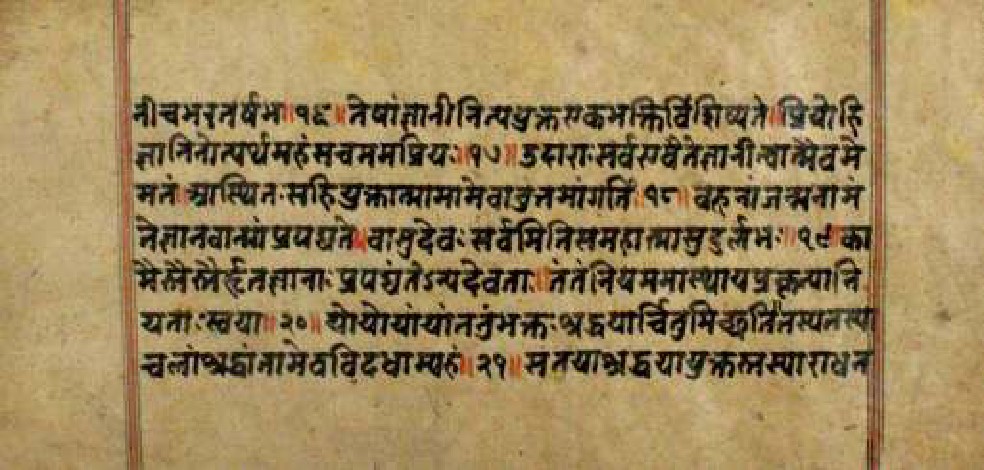 नी च भरतर्षभ ॥ १६ ॥ तेषां ज्ञानी नित्ययुक्त एकभक्तिर्विशिष्यते । प्रियो हि
ज्ञानिनोत्यर्थमहं स च मम प्रियः ॥ १७ ॥ उदाराः सर्व एवैते ज्ञानी त्वात्मैव मे
मतं । आस्थितः स हि युक्तात्मा मामेवानुत्तमां गतिं ॥ १८ ॥ बहूनां जन्मनामं
ते ज्ञानवान्मां प्रपद्यते । वासुदेवः सर्वमिति स महात्मा सुदुर्लभः ॥ १९ ॥ का
मैस्तैस्तैर्हृतज्ञानाः प्रपद्यंतेऽन्यदेवताः । तं तं नियममास्थाय प्रकृत्या नि
यताः स्वया ॥ २० ॥ यो यो यां यां तनुं भक्तः श्रद्धयार्चितुमिच्छति । तस्य तस्या
चलां श्रद्धां तामेव विदधाम्यहं ॥ २१ ॥ स तया श्रद्धया युक्तस्तस्याराधन